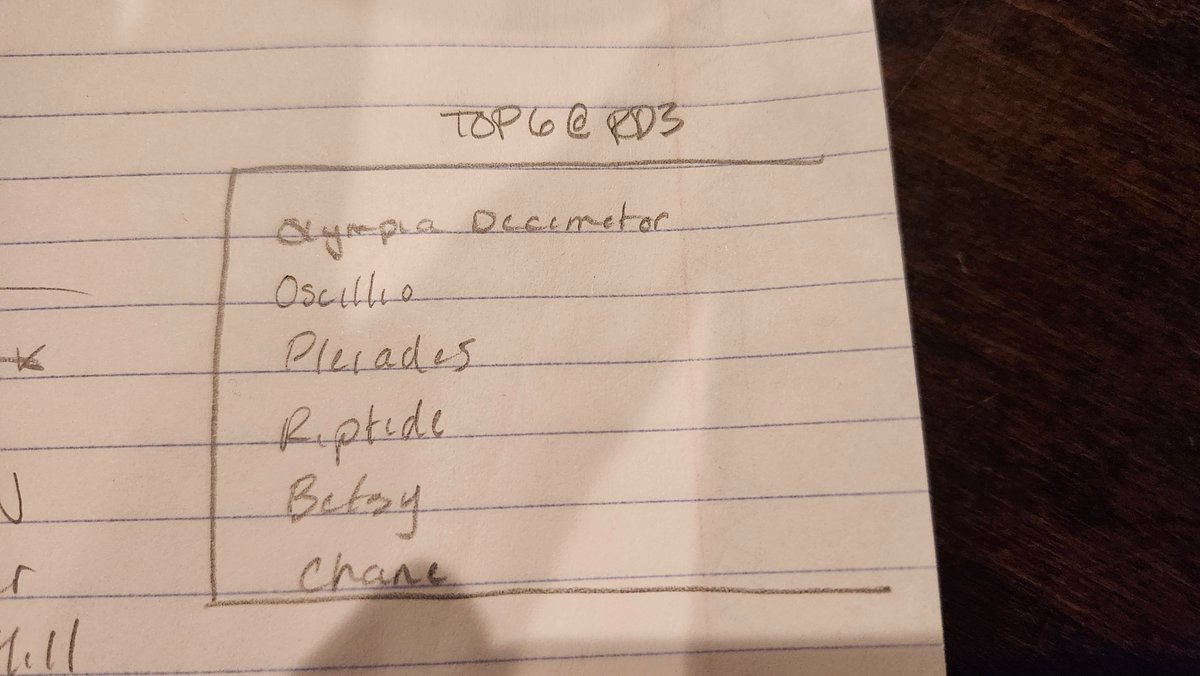 TOP 6 @ RD3
Olympia Deccmetor
Oscillio
Pleiades
Riptide
Betsy
Chane